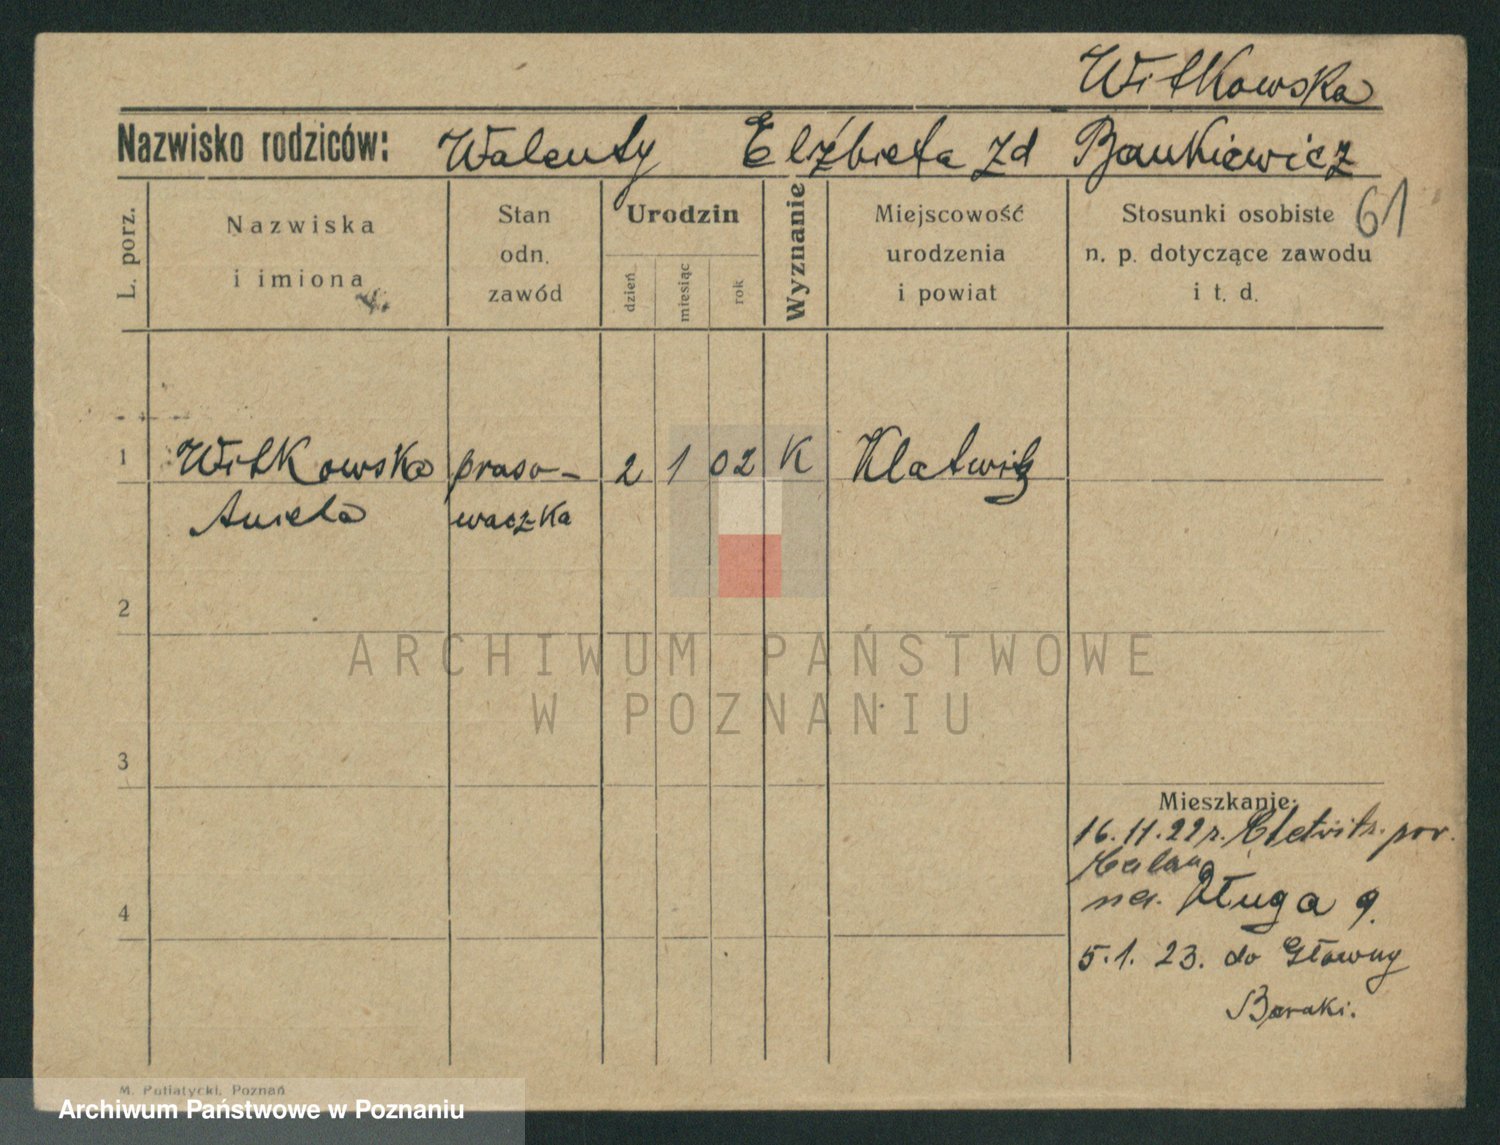 Witkowska
Nazwisko rodziców: Walenty Elżbieta zd Bankiewicz
61
L. porz.
Nazwiska
i imiona
Stan
odn.
zawód
Urodzin
dzień
miesiąc
rok
Wyznanie
Miejscowość
urodzenia
i powiat
Stosunki osobiste
n. p. dotyczące zawodu
i t. d.
1 Witkowska praso- 2 1 02 K Klatwitz
Aniela waczka
2
ARCHIWUM PAŃSTWOWE
W POZNANIU
3
Mieszkanie:
16.11.22 r. pow.
na. Długa 9.
4
5.1.23. do Główny
Baraki.
M. Putiatycki, Poznań
Archiwum Państwowe w Poznaniu